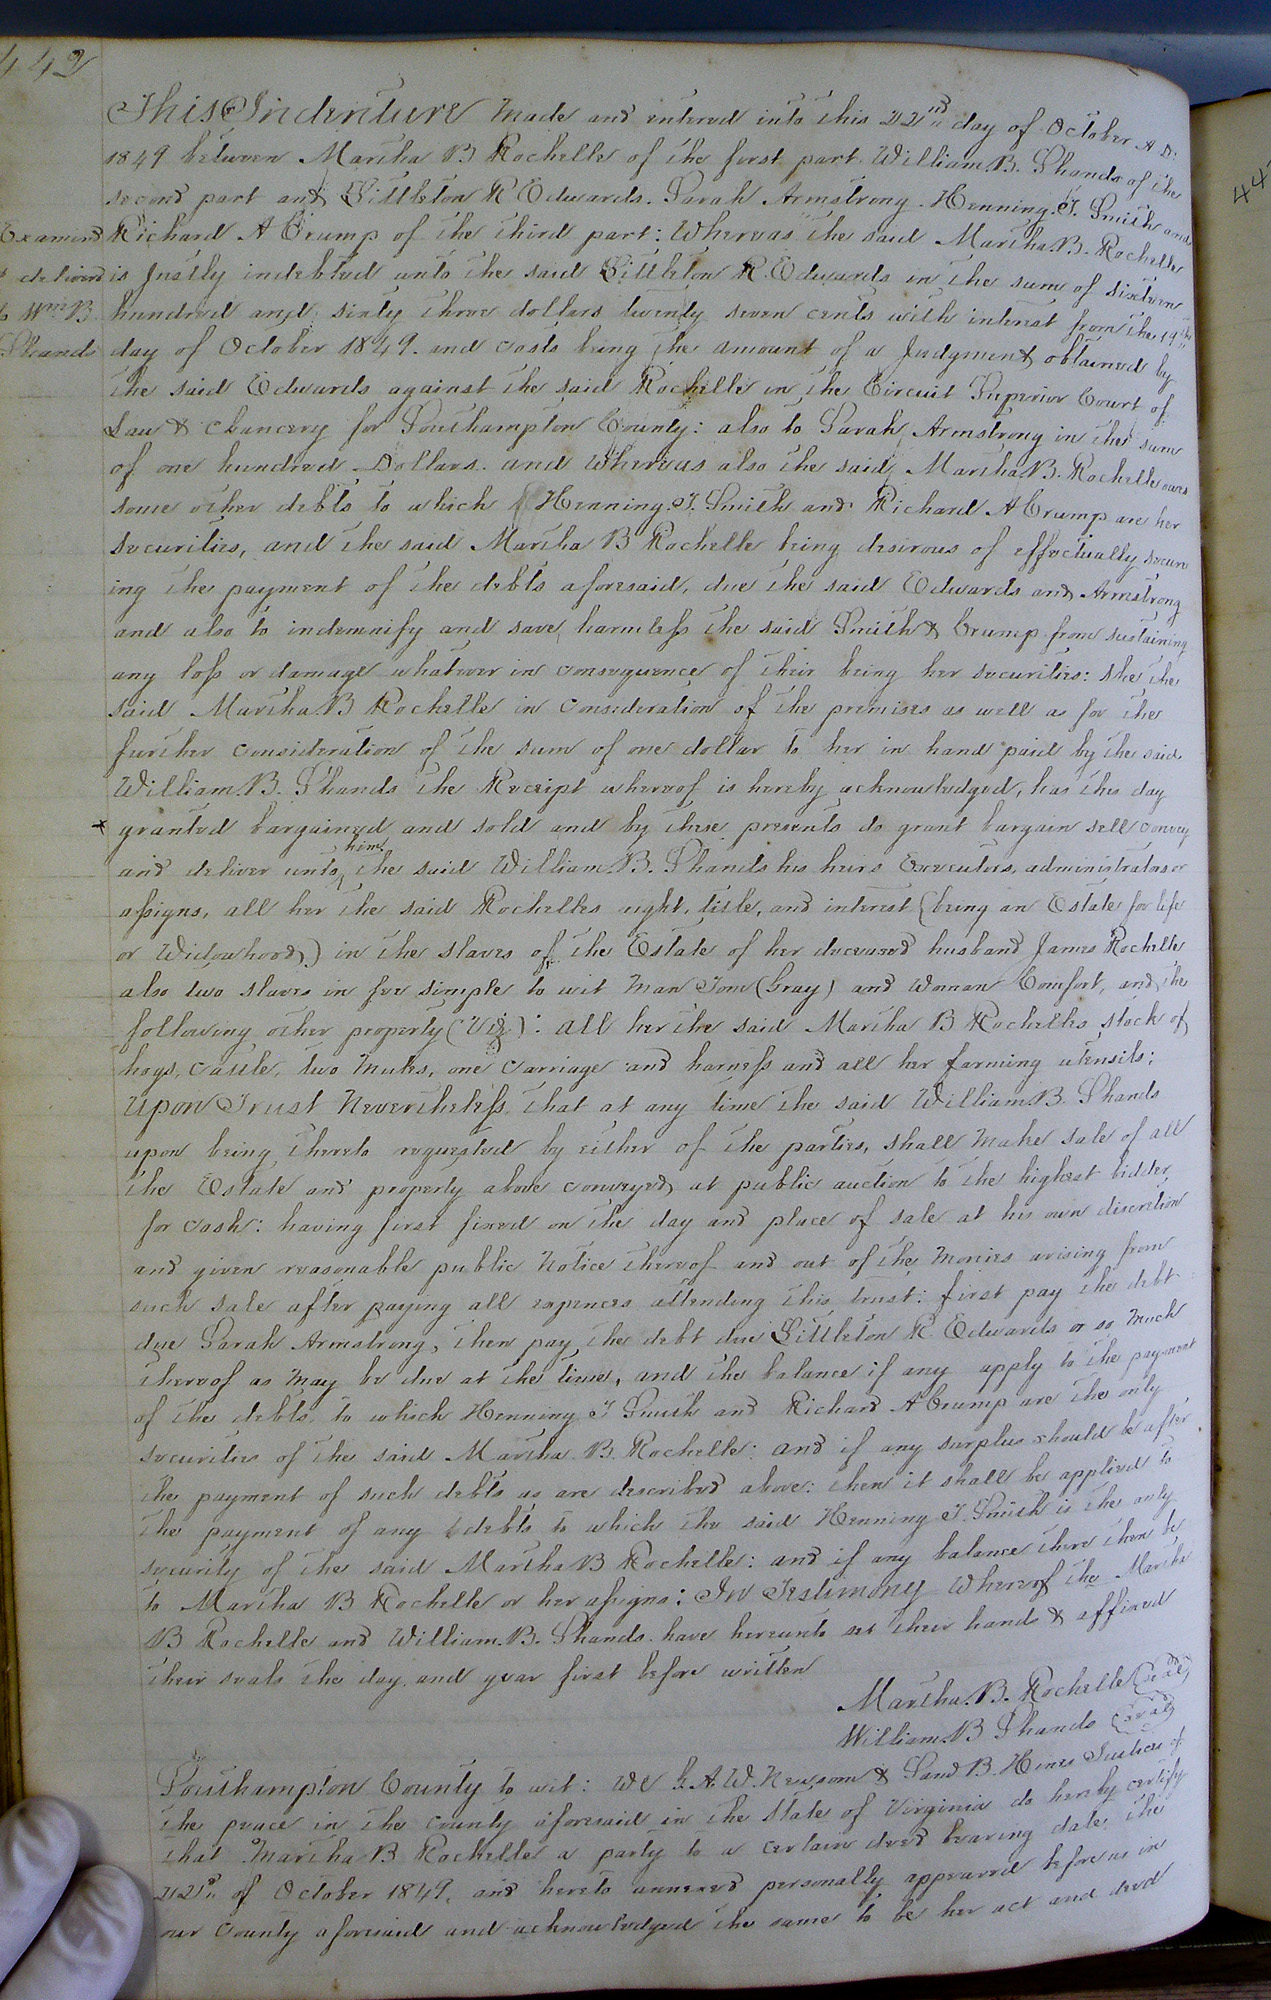 442
This Indenture Made and entered into this 22nd day of October A D.
1849 between Martha B Rochelle of the first part. William B. Shands of the
second part and Littleton R Edwards. Sarah Armstrong. Henning T. Smith and
Examined
Richard A Crump of the third part: Whereas the said Martha B. Rochelle
& delivered
is Justly indebted unto the said Littleton R. Edwards in the sum of sixteen
to Wm B
hundred and sixty three dollars twenty seven cents with interest from the 19th
Shands
day of October 1849. and costs being the amount of a Judgment obtained by
the said Edwards against the said Rochelle in the Circuit Superior Court of
Law & Chancery for Southampton County: also to Sarah Armstrong in the sum
of one hundred Dollars. and Whereas also the said Martha B. Rochelle owes
some other debts to which Henning T. Smith and Richard A Crump are her
securities, and the said Martha B Rochelle being desirous of effectually secur
ing the payment of the debts aforesaid, due the said Edwards and Armstrong
and also to indemnify and save harmless the said Smith & Crump from sustaining
any loss or damage whatever in consequence of their being her securities: She the
said Martha B Rochelle in consideration of the premises as well as for the
further consideration of the sum of one dollar to her in hand paid by the said
William B. Shands the Receipt whereof is hereby acknowledged, has this day
x granted bargained and sold and by these presents do grant bargain sell convey
and deliver unto him the said William B. Shands his heirs Executors, administrators or
assigns, all her the said Rochelles right, title, and interest (being an Estate for life
or Widowhood,) in the slaves of the Estate of her deceased husband James Rochelle
also two slaves in fee simple to wit Man Tom (Gray) and Woman Comfort, and the
following other property (Viz): all her the said Martha B Rochelles stock of
hogs, cattle, two Mules, one carriage and harness and all her farming utensils:
Upon Trust Nevertheless that at any time the said William B. Shands
upon being thereto requested by either of the parties, shall Make sale of all
the Estate and property above conveyed, at public auction to the highest bidder,
for cash: having first fixed on the day and place of sale at his own discretion
and given reasonable public Notice thereof and out of the Monies arising from
such sale after paying all expences attending this trust: first pay the debt
due Sarah Armstrong, then pay the debt due Littleton R. Edwards or so Much
thereof as May be due at the time, and the balance if any apply to the payment
of the debts to which Henning T Smith and Richard A Crump are the only
securities of the said Martha B. Rochelle: and if any surplus should be after
the payment of such debts as are described above: then it shall be applied to
the payment of any debts to which the said Henning T. Smith is the only
security of the said Martha B Rochelle: and if any balance there then be
to Martha B Rochelle or her assigns: In Testimony Whereof the Martha
B Rochelle and William B. Shands have hereunto set their hands & affixed
their seals the day and year first before written
Martha. B. Rochelle (seal)
William. B Shands (seal)
Southampton County to wit: We A. W. Newsom & B. Hines Justices of
the peace in the County aforesaid in the State of Virginia do hereby certify
that Martha B Rochelle a party to a certain deed bearing date the
22nd of October 1849, and hereto annexed personally appeared before us in
our County aforesaid and acknowledged the same to be her act and deed